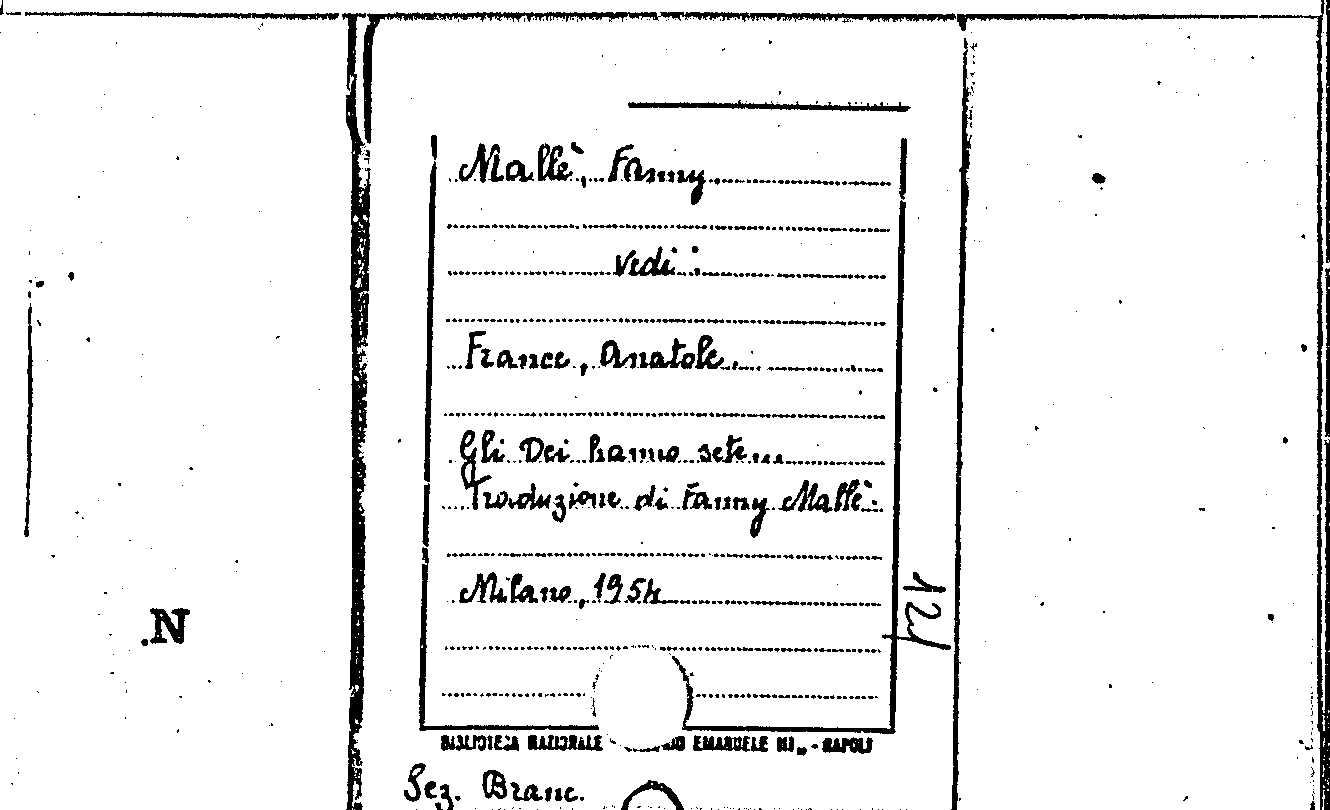 Mallè, Fanny.
vedi :
France, Anatole.
Gli Dei hanno sete...
Traduzione di Fanny Mallè.
Milano, 1954
121
N
BIBLIOTECA NAZIONALE EMANUELE III - NAPOLI
Sez. Branc.